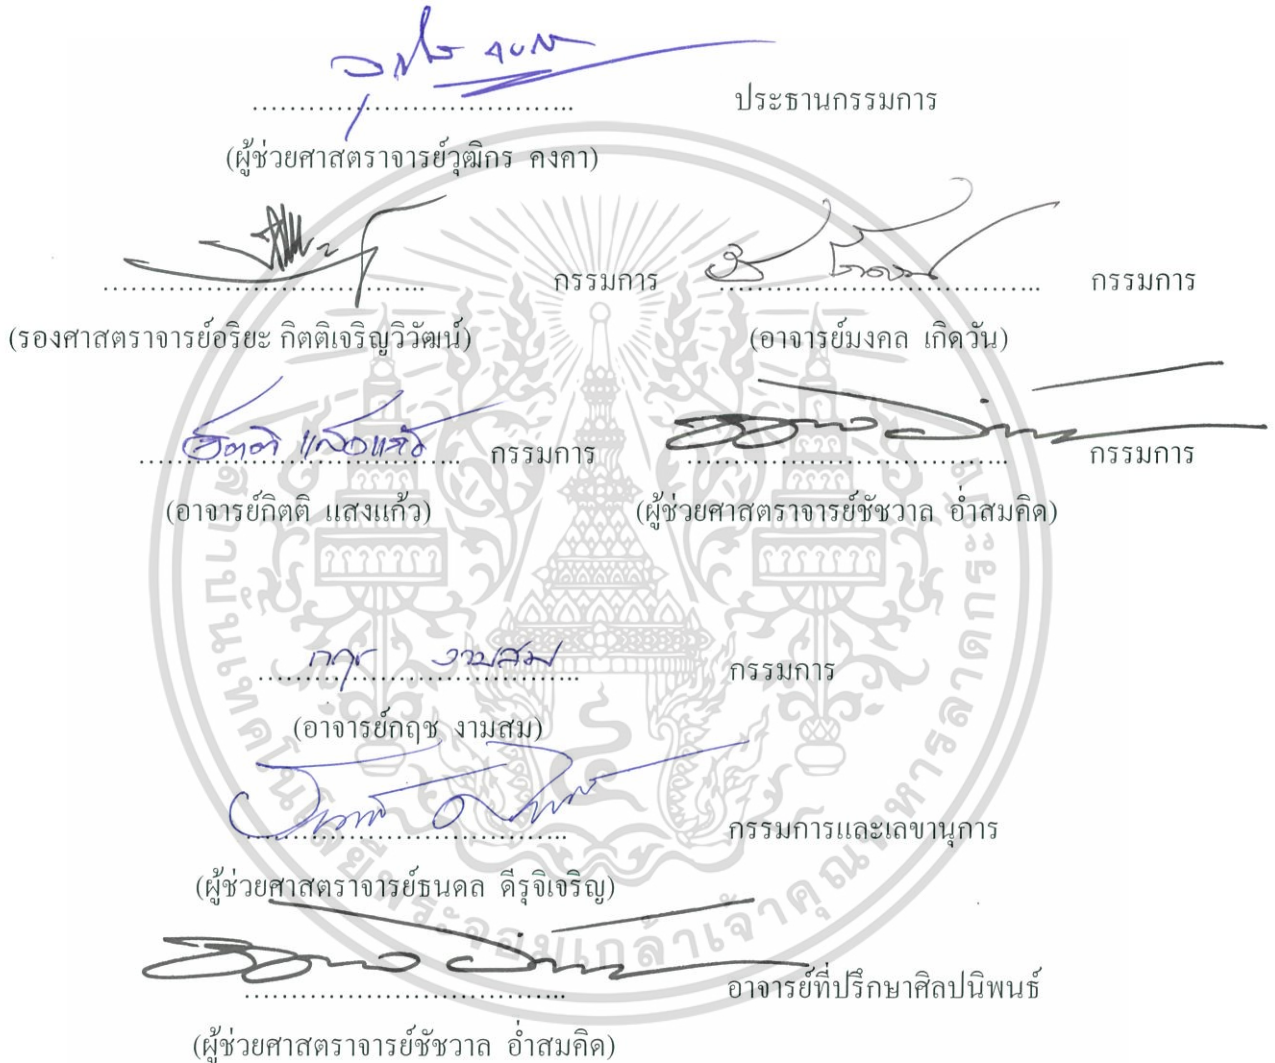 ประธานกรรมการ
(ผู้ช่วยศาสตราจารย์วุฒิกร คงคา)
กรรมการ กรรมการ
(รองศาสตราจารย์อริยะ กิตติเจริญวิวัฒน์) (อาจารย์มงคล เกิดวัน)
กิตติ แสงแก้ว กรรมการ กรรมการ
(อาจารย์กิตติ แสงแก้ว) (ผู้ช่วยศาสตราจารย์ชัชวาล อ่ำสมคิด)
กฤช งามสม กรรมการ
(อาจารย์กฤช งามสม)
กรรมการและเลขานุการ
(ผู้ช่วยศาสตราจารย์ธนดล ดีรุจิเจริญ)
อาจารย์ที่ปรึกษาศิลปนิพนธ์
(ผู้ช่วยศาสตราจารย์ชัชวาล อ่ำสมคิด)
สถาบันเทคโนโลยีพระจอมเกล้าเจ้าคุณทหารลาดกระบัง